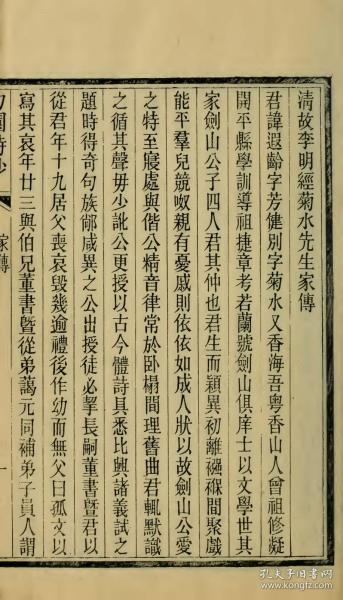 清故李明經菊水先生家傳
君諱遐齡字芳健別字菊水又香海吾粵香山人曾祖修凝
開平縣學訓導祖捷章考若蘭號劍山俱庠士以文學世其
家劍山公子四人君其仲也君生而穎異初離襁褓間聚戲
能平羣兒競呶親有憂慼則依依如成人狀以故劍山公愛
之特至寢處與偕公精音律常於卧榻間理舊曲君輒默識
之循其聲毋少訛公更授以古今體詩具悉比興諸義試之
題時得奇句族鄰咸異之公出授徒必挈長嗣董書暨君以
從君年十九居父喪哀毀幾逾禮後作幼而無父曰孤文以
寫其哀年廿三與伯兄董書暨從弟藹元同補弟子員人謂
園詩少
家傳
一
孔夫子旧书网